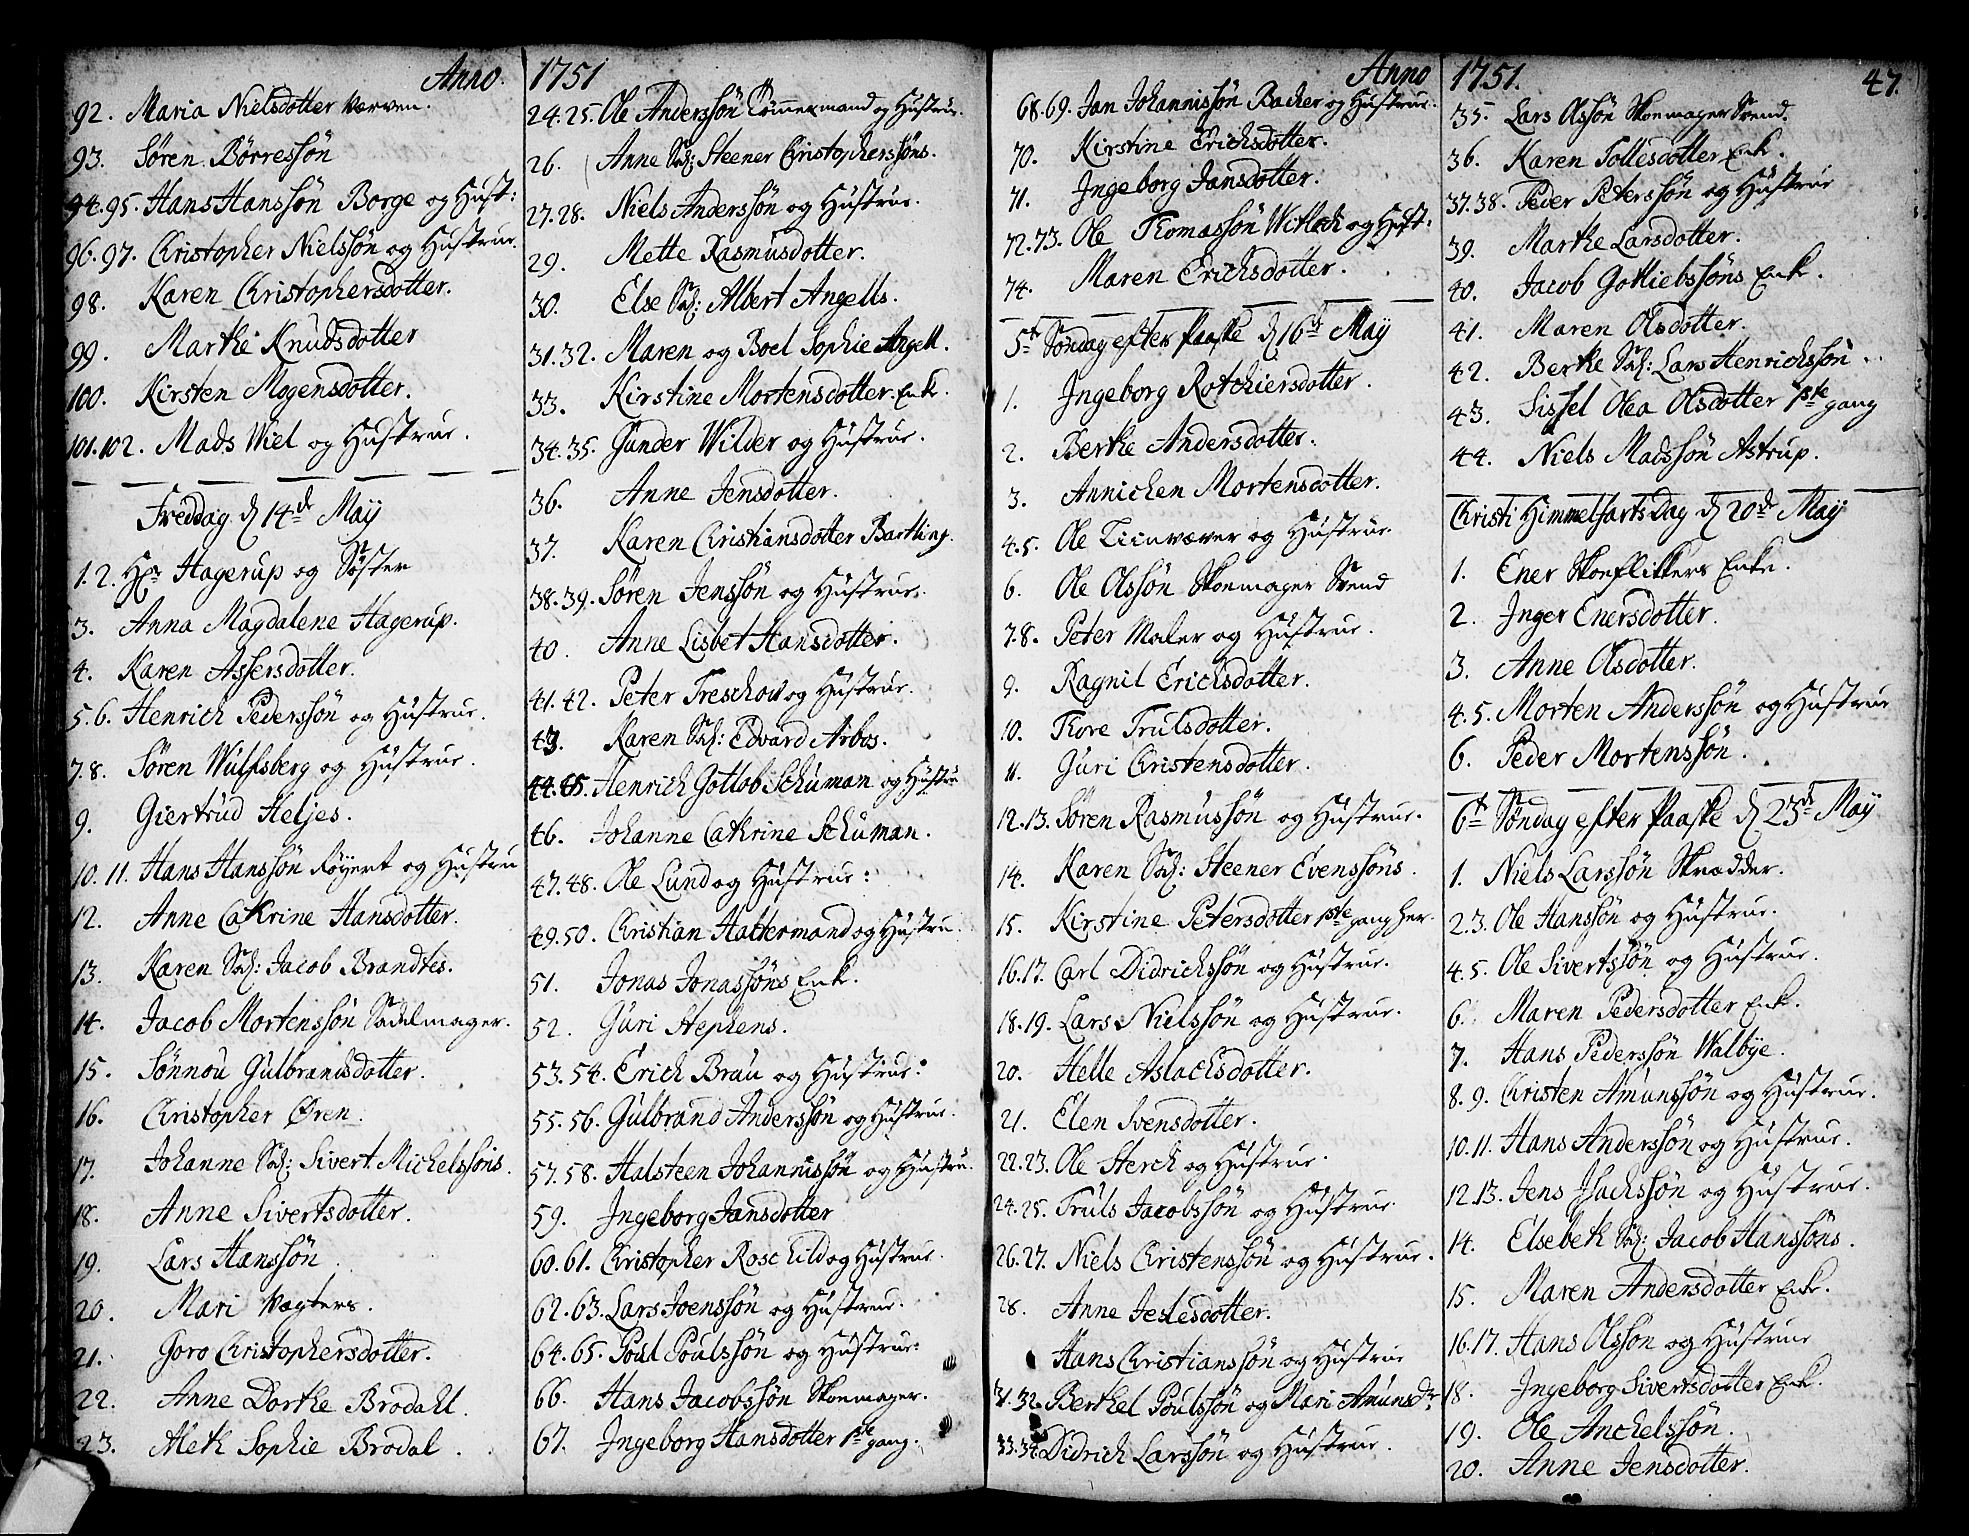 Anno 1751
92. Maria Nielsdotter Værven.
93. Søren Börressön
94.95. Hans Hanssön Borge og Hust:
96.97. Christopher Nielssön og Hustrue.
98. Karen Christophersdotter.
99. Marthe Knudsdotter
100. Kirsten Mogensdotter.
101.102. Mads Wiel og Hustrue.
Freddag d 14de May
1.2. Hr Hagerup og Söster
3. Anna Magdalene Hagerup.
4. Karen Assersdotter.
5.6. Henrich Pederssön og Hustrue.
7.8. Sören Wulfsberg og Hustrue.
9. Giertrud Heljes.
10.11. Hans Hanssön Röyert og Hustru
12. Anne Cathrine Hansdotter.
13. Karen Sal: Jacob Brandtes.
14. Jacob Mortenssön Sadelmager.
15. Sönnou Gulbrandsdotter.
16. Christopher Øren.
17. Johanne Sal: Sivert Michelssöns.
18. Anne Sivertsdotter.
19. Lars Hanssön
20. Mari Vægters.
21. Goro Christophersdotter.
22. Anne Dorthe Brodahl.
23. Aleth Sophie Brodal.
24.25. Ole Anderssön Tömmermand og Hustrue.
26. Anne Sal: Steener Christopherssöns.
27.28. Niels Anderssön og Hustrue.
29. Mette Rasmusdotter.
30. Else Sal: Albert Angells.
31.32. Maren og Boel Sophie Angell.
33. Kirstine Mortensdotter. Enk.
34.35. Gunder Wilder og Hustrue.
36. Anne Jensdotter.
37. Karen Christiansdotter Bartling.
38.39. Sören Jenssön og Hustrue.
40. Anne Lisbet Hansdotter.
41.42. Peter Treschow og Hustrue.
43. Karen Sal: Edvard Arbos.
44.45. Henrich Gottlob Schuman og Hustru
46. Johanne Cathrine Schuman.
47.48. Ole Lund og Hustrue:
49.50. Christian Hattermand og Hustru.
51. Jonas Jonassöns Enk.
52. Guri Stephens.
53.54. Erich Brau og Hustrue:
55.56. Gulbrand Anderssön og Hustrue.
57.58. Halsteen Johannissön og Hustru.
59. Ingeborg Jansdotter
60.61. Christopher Roschild og Hustrue.
62.63. Lars Joenssön og Hustrue.
64.65. Poul Poulssön og Hustrue:
66. Hans Jacobssön Skoemager.
67. Ingeborg Hansdotter 1ste gang.
Anno 1751. 47.
68.69. Jan Johannissön Backer og Hustrue.
70. Kirstine Erichsdotter.
71. Ingeborg Jansdotter.
72.73. Ole Thomassön Witloch og Hust:
74. Maren Erichsdotter.
5te Söndag efter Paaske d 16de May
1. Ingeborg Rotchiersdotter.
2. Berthe Andersdotter.
3. Annichen Mortensdotter.
4.5. Ole Liinvæver og Hustrue
6. Ole Olssön Skoemager Svend
7.8. Peter Maler og Hustrue.
9. Ragnil Erichsdotter.
10. Thore Trulsdotter.
11. Guri Christensdotter.
12.13. Sören Rasmussön og Hustrue.
14. Karen Sal: Steener Evenssöns.
15. Kirstine Petersdotter 1ste gang her.
16.17. Carl Didrichssön og Hustrue.
18.19. Lars Nielssön og Hustrue.
20. Helle Aslachsdotter.
21. Elen Svensdotter.
22.23. Ole Sterch og Hustrue.
24.25. Truls Jacobssön og Hustrue.
26.27. Niels Christenssön og Hustrue.
28. Anne Jeslesdotter.
Hans Christianssön og Hustrue
31.32. Berthel Poulssön og Mari Amunsdr
33.34. Didrich Larssön og Hustrue.
35. Lars Olssön Skoemager Svend.
36. Karen Tollesdotter Enk.
37.38. Peder Peterssön og Hustrue
39. Marthe Larsdotter.
40. Jacob Gotliebssöns Enk.
41. Maren Olsdotter.
42. Berthe Sal: Lars Henrichssön..
43. Sissel Olea Olsdotter 1ste gang
44. Niels Madssön Astrup.
Christi Himmelfarts Dag d 20de May
1. Ener Skoeflikkers Enke.
2. Inger Enersdotter.
3. Anne Olsdotter.
4.5. Morten Anderssön og Hustrue
6. Peder Mortenssön.
6te Söndag efter Paaske d 23de May
1. Niels Larssön Skrædder.
2.3. Ole Hanssön og Hustrue.
4.5. Ole Sivertssön og Hustrue.
6. Maren Pedersdotter Enk.
7. Hans Pederssön Walbye.
8.9. Christen Amunssön og Hustrue.
10.11. Hans Anderssön og Hustrue.
12.13. Jens Isachssön og Hustrue.
14. Elsebeth Sal: Jacob Hanssöns.
15. Maren Andersdotter Enk.
16.17. Hans Olssön og Hustrue
18. Ingeborg Sivertsdotter Enk.
19. Ole Anchelssön.
20. Anne Jensdotter.